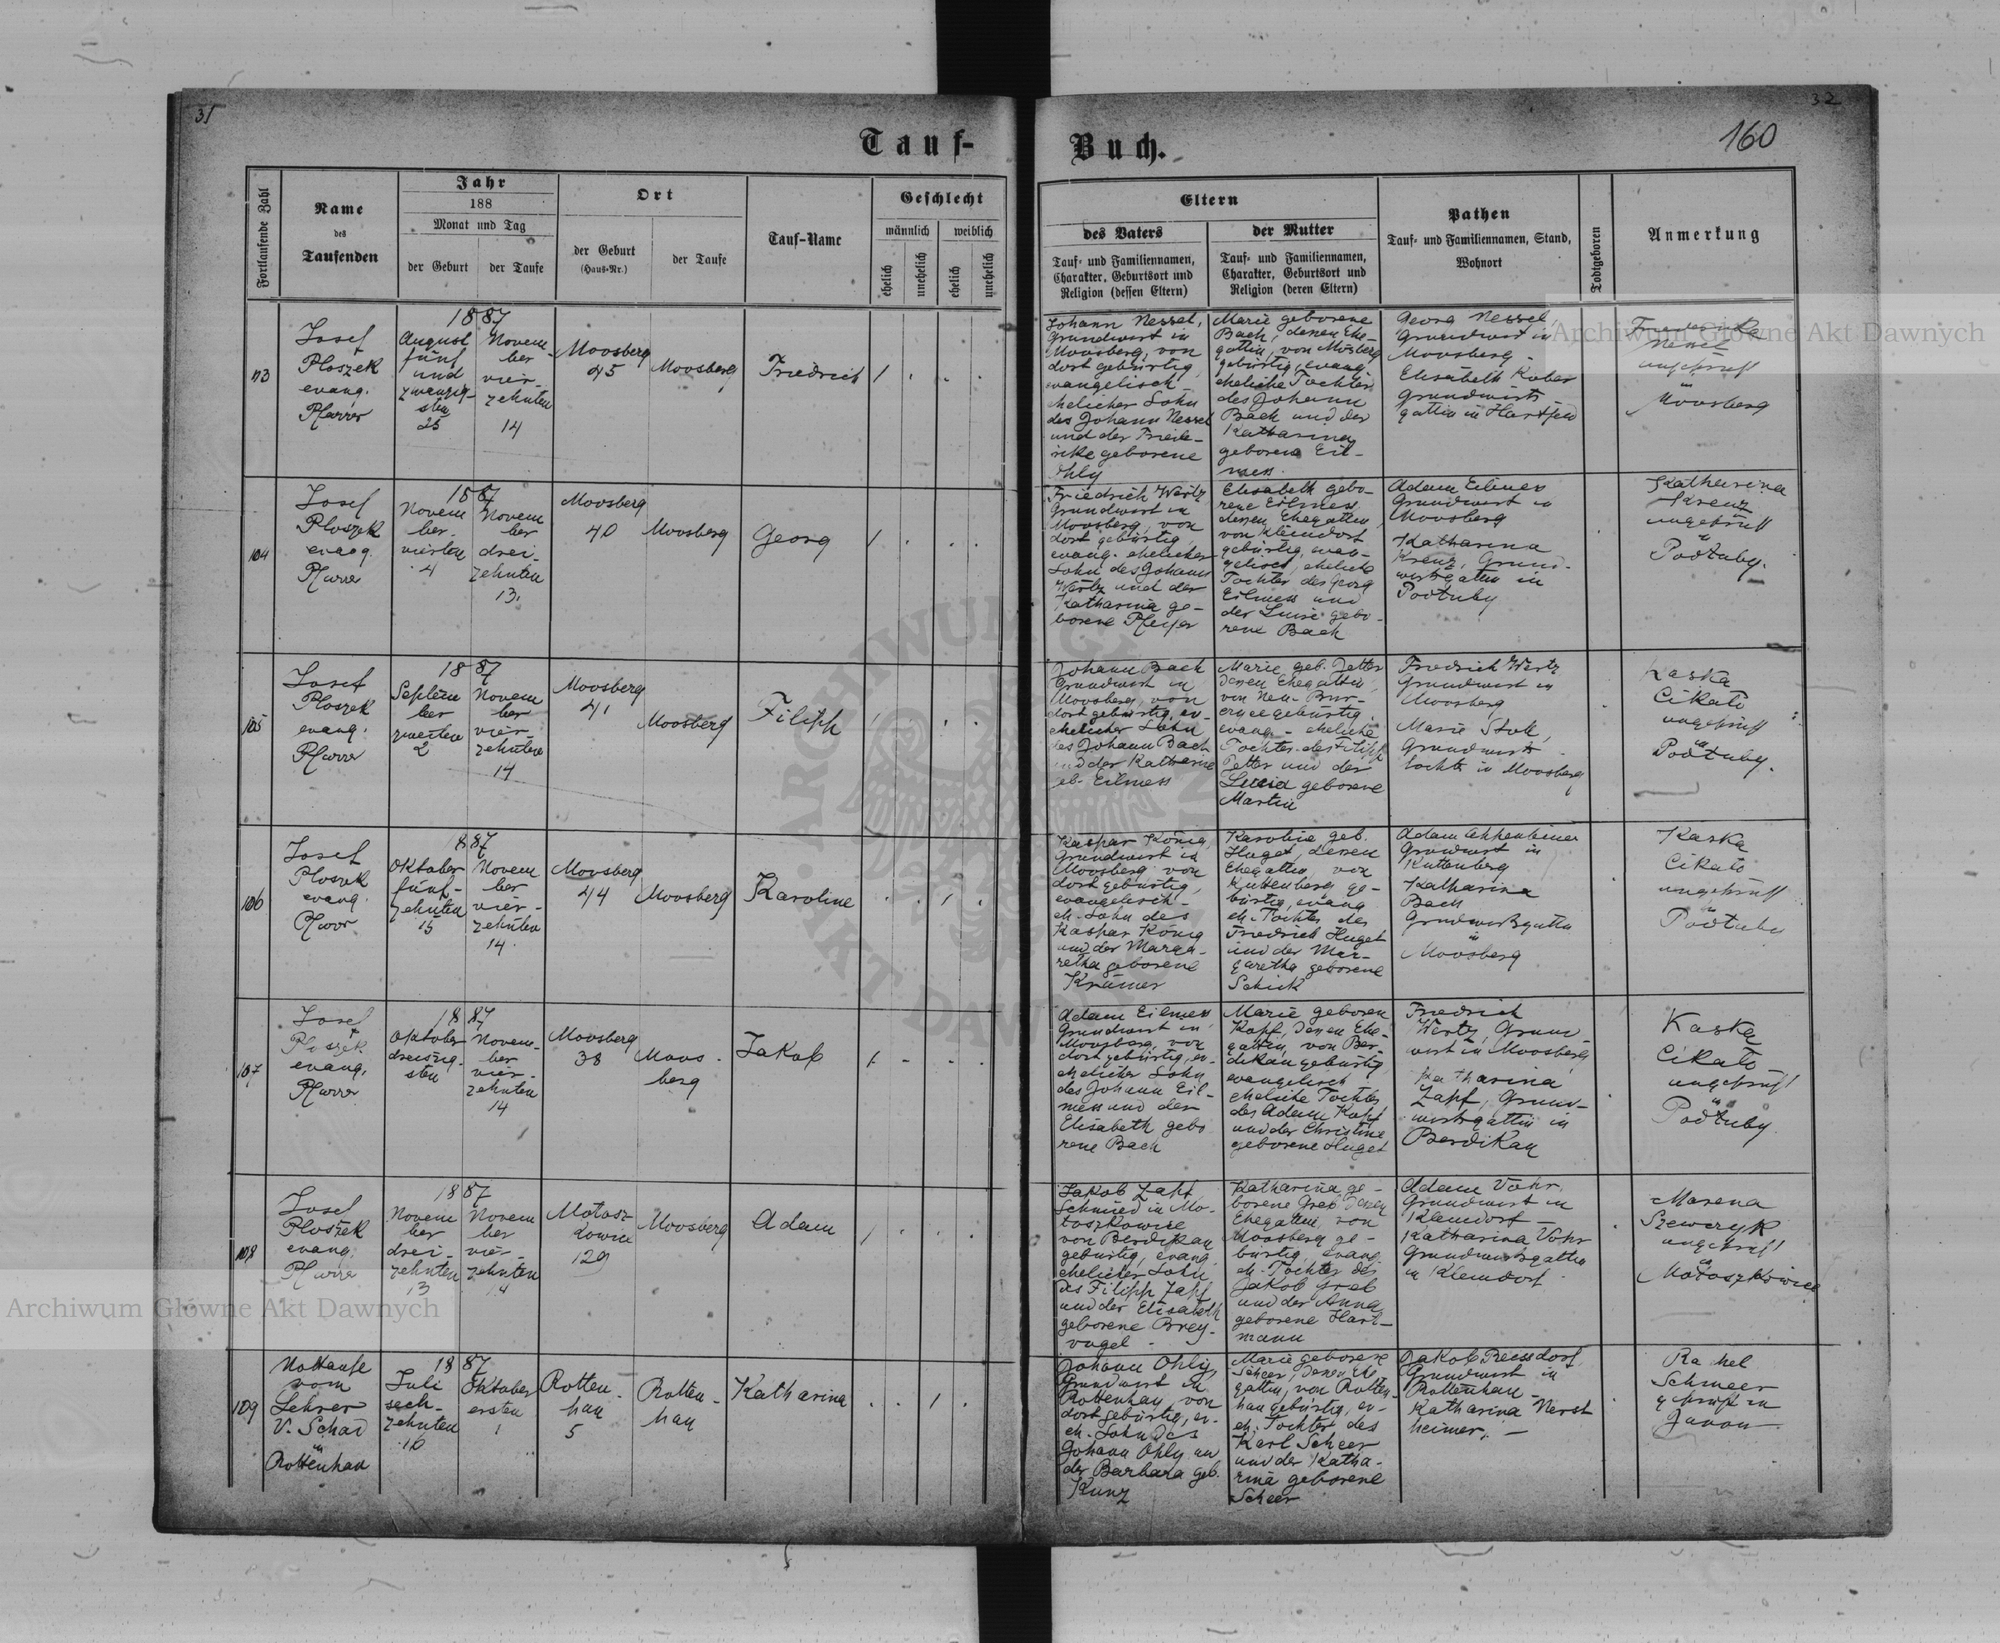 31
32
160
Tauf-
Buch.
Fortlaufende Zahl
Name
des
Taufenden
Jahr
188
Monat und Tag
der Geburt
der Taufe
Ort
der Geburt
(Haus-Nr.)
der Taufe
Tauf-Name
Geschlecht
männlich
weiblich
ehelich
unehelich
ehelich
unehelich
Eltern
des Vaters
Tauf- und Familiennamen,
Charakter, Geburtsort und
Religion (dessen Eltern)
der Mutter
Tauf- und Familiennamen,
Charakter, Geburtsort und
Religion (deren Eltern)
Pathen
Tauf- und Familiennamen, Stand,
Wohnort
Todtgeboren
Anmerkung
Josef
Ploszek
evang.
Pfarrer
1887
August
fünf
und
zwanzig-
sten
25
Novem
ber
vier-
zehnten
14
Moosberg
45
Moosberg
Friedrich
Johann Nessel,
Grundwirt in
Moosberg, von
dort gebürtig,
evangelisch-
ehelicher Sohn
des Johann Nessel
und der Friede-
rike geborene
Ohly
Marie geborene
Bach, denen Ehe-
gattin, von Mosberg
gebürtig, evang.
eheliche Tochter
des Johann
Bach und der
Katharina
geborene Eil-
mess.
Georg Nessel,
Grundwirt in
Moosberg -
Elisabeth Kober
Grundwirts-
gattin in Hartfeld
ungeprüft
in
Moosberg
104
Josef
Ploszek
evang.
Pfarrer
1887
Novem
ber
vierten
4
Novem
ber
drei-
zehnten
13.
Moosberg
40
Moosberg
Georg
Friedrich Wertz
Grundwirt in
Moosberg, von
dort gebürtig,
evang. ehelicher
Sohn des Johann
Wertz und der
Katharina ge-
borene Pfeifer
Elisabeth gebo-
rene Eilmess
denen Ehegattin,
von Kleindorf
gebürtig, evan-
gelisch, eheliche
Tochter des Georg
Eilmess und
der Luise gebo-
rene Bach
Adam Eilmess
Grundwirt in
Moosberg
Katharina
Krenz, Grund-
wirtsgattin in
Podłuby
Katharina
Krenz
ungeprüft
in
Podłuby.
105
Josef
Ploszek
evang.
Pfarrer
1887
Septem
ber
zweiten
2
Novem
ber
vier-
zehnten
14
Moosberg
41
Moosberg
Filipp
Johann Bach
Grundwirt in
Moosberg, von
dort gebürtig, ev-
ehelicher Sohn
des Johann Bach
und der Katharine
geb. Eilmess
Marie geb. Petter
denen Ehegattin,
von Neu-
gebürtig,
evang- eheliche
Tochter des Filipp
Petter und der
Lucia geborene
Martin
Friedrich Wertz
Grundwirt in
Moosberg
Marie
Grundwirts-
tochter in Moosberg
Kaska
Cikało
ungeprüft
in
Podłuby.
106
Josef
Ploszek
evang.
Pfarrer
1887
Oktober
fünf-
zehnten
15
Novem
ber
vier-
zehnten
14.
Moosberg
44
Moosberg
Karoline
Kaspar König
Grundwirt in
Moosberg von
dort gebürtig,
evangelisch-
eh. Sohn des
Kaspar König
und der Marga-
retha geborene
Krämer
Karoline geb.
Huget, denen
Ehegattin, von
Kuttenberg ge-
bürtig, evang
eh. Tochter des
Friedrich Huget
und der Mar-
garetha geborene
Schick
Adam
Grundwirt in
Kuttenberg
Katharina
Bach
Grundwirtsgattin
in
Moosberg
Kaska
Cikało
ungeprüft
in
Podłuby
107
Josef
Ploszek
evang.
Pfarrer
1887
Oktober
dreiszig-
sten
Novem-
ber
vier-
zehnten
14
Moosberg
38
Moos-
berg
Jakob
Adam Eilmess
Grundwirt in
Moosberg, von
dort gebürtig, ev-
ehelicher Sohn
des Johann Eil-
mess und der
Elisabeth gebo
rene Bach
Marie geboren
Kopf, denen Ehe-
gattin, von Ber-
dikau gebürtig,
evangelisch
eheliche Tochter
des Adam Kopf
und der Christine
geborene Huget
Friedrich
Wertz, Grund-
wirt in Moosberg
Katharina
Zapf, Grund-
wirtsgattin in
Berdikau
Kaska
Cikało
ungeprüft
in
Podłuby
108
Josef
Ploszek
evang.
Pfarrer
1887
Novem
ber
drei-
zehnten
13
Novem
ber
vier-
zehnten
14
Motosz
kowice
129
Moosberg
Adam
Jakob Zapf
Schmied in Mo-
toszkowice
von Berdikau
gebürtig, evang.
ehelicher Sohn
des Filipp Zapf
und der Elisabeth
geborene Brey-
vogel -
Katharina ge-
borene Greb denen
Ehegattin, von
Moosberg ge-
bürtig, evang.
eh. Tochter des
Jakob Greb
und der Anna
geborene Hart-
mann
Adam Vohr
Grundwirt in
Kleindorf -
Katharina Vohr
Grundwirtsgattin
in Kleindorf
Marena
Szewczyk
ungeprüft
in
Motoszkowice
109
Nottaufe
vom
Lehrer
V. Schad
in
Rottenhan
1887
Juli
sech-
zehnten
16
Oktober
ersten
1
Rotten-
han
5
Rotten-
han
Katharina
Johann Ohly,
Grundwirt in
Rottenhan, von
dort gebürtig, ev-
eh. Sohn des
Johann Ohly un
der Barbara geb.
Kunz
Marie geborene
Scheer, denen Ehe
gattin, von Rotten-
han gebürtig, ev-
eh. Tochter des
Karl Scheer
und der Katha-
rina geborene
Scheer
Jakob Reessdorf
Grundwirt in
Rottenhan -
Katharina Nerst
heimer. -
Rachel
Schmeer
geprüft in
Janow
Archiwum Główne Akt Dawnych
Archiwum Główne Akt Dawnych